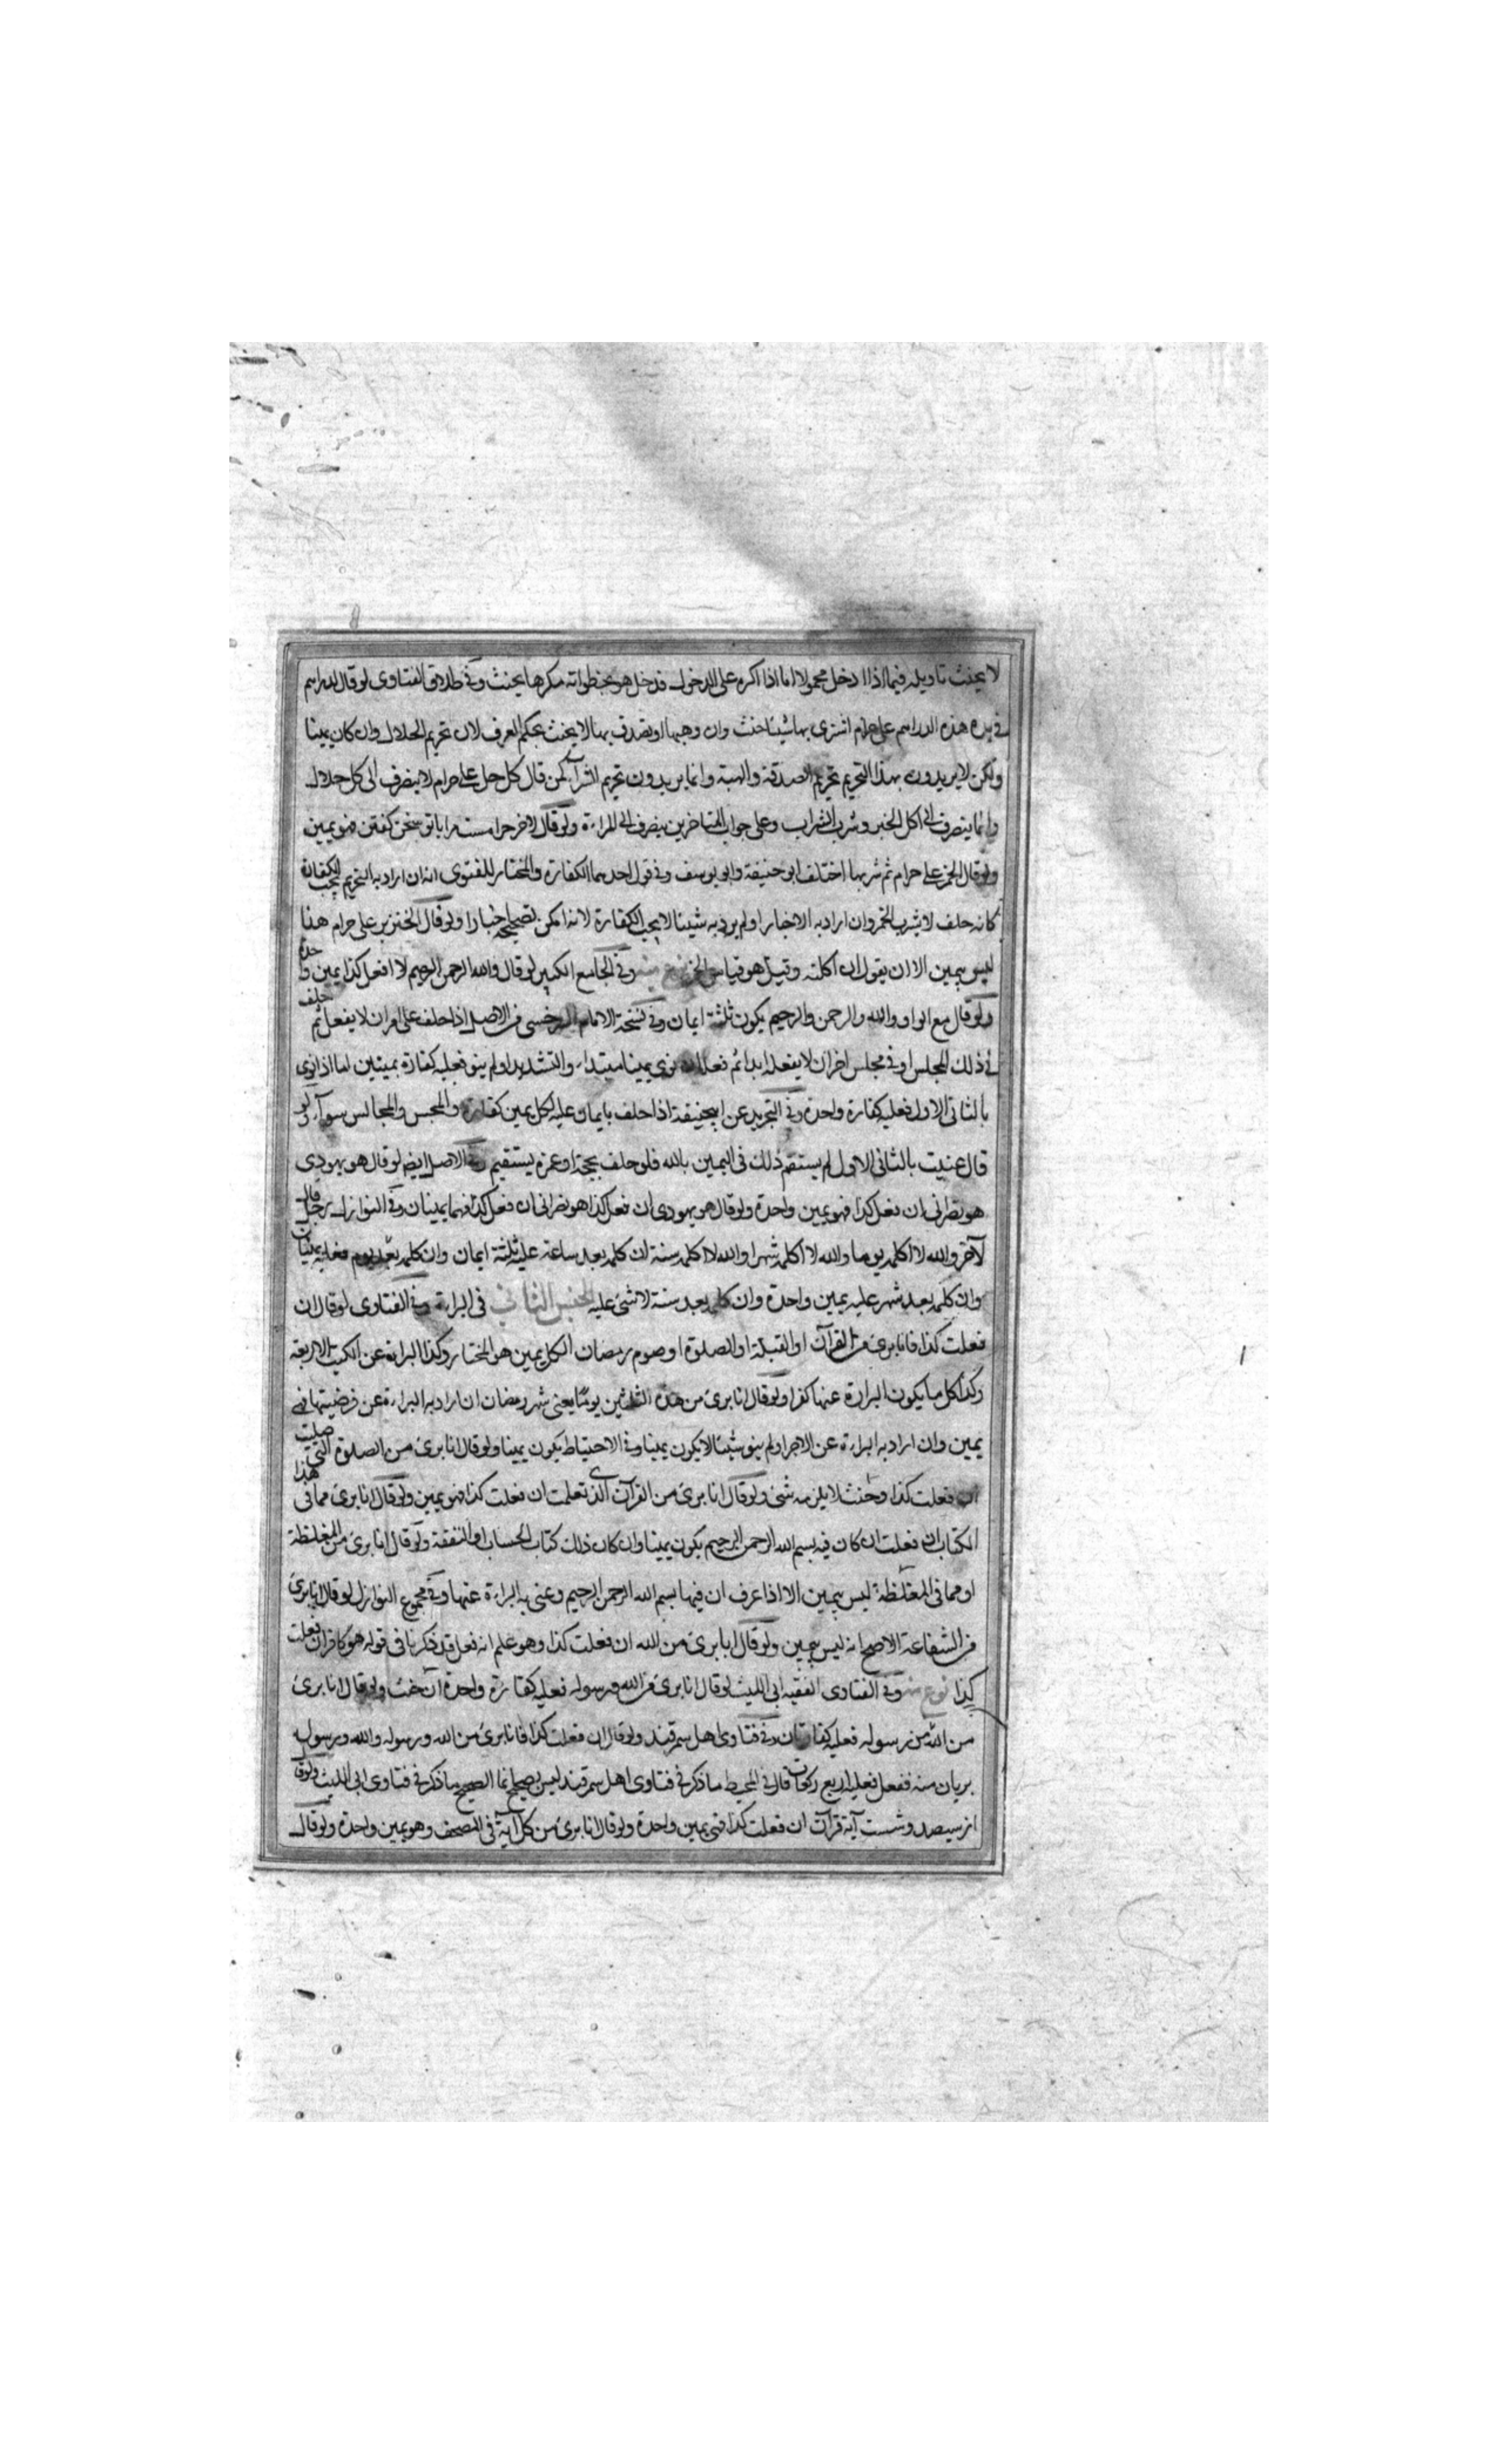 لا يحنث تاويله فيما اذا ادخل محمولا اما اذا اكره على الدخول فدخل هو بخطواته مكرها يحنث وفي طلاق الفتاوى لو قال لدراهم
في يده هذه الدراهم على حرام اشترى بها شيئا حنث وان وهبها او تصدق بها لا يحنث بحكم العرف لان تحريم الحلال وان كان يمينا
ولكن لا يريدون بهذا التحريم تحريم الصدقة والهبة وانما يريدون تحريم الشرآ كمن قال كل حل على حرام لا ينصرف الى كل حلال
وانما ينصرف الى اكل الخبز وشرب الشراب وعلى جواب المتاخرين ينصرف الى المراءة ولو قال لاخر حرامست مرا باتو سخن كفتن فهو يمين
ولو قال الخمر على حرام ثم شربها اختلف ابو حنيفة وابو يوسف وفي قول احدهما الكفارة والمختار للفتوى انه ان اراد به التحريم يجب الكفارة
كانه حلف لا يشرب الخمر وان اراد به الاخبار او لم يرد به شيئا لا يجب الكفارة لانه امكن تصحيحه اخبارا ولو قال الخنزير على حرام هذا
ليس بيمين الا ان يقول ان اكلته وقيل هو قياس الخمر نوع منه وفي الجامع الكبير لو قال والله الرحمن الرحيم لا افعل كذا يمين واحدة
ولو قال مع الواو والله والرحمن والرحيم يكون ثلثة ايمان وفي نسخة الامام السرخسى في الاصل اذا حلف على امر ان لا يفعل ثم حلف
في ذلك المجلس او في مجلس اخر ان لا يفعله ابدا ثم فعله ان نوى يمينا مبتداء والتشديد او لم ينو فعليه كفارة يمينين اما اذا نوى
بالثانى الاول فعليه كفارة واحدة وفي التجريد عن ابيحنيفة اذا حلف بايمان عليه لكل يمين كفارة والمجلس والمجالس سواء ولو
قال عنيت بالثانى الاول لم يستقم ذلك فى اليمين بالله فلو حلف بحجة او عمرة يستقيم وفي الاصل ايضا لو قال هو يهودى
هو نصرانى ان فعل كذا فهو يمين واحدة ولو قال هو يهودى ان فعل كذا هو نصرانى ان فعل كذا فهما يمينان وفي النوازل رجل قال
لآخر والله لا اكلمه يوما والله لا اكلمه شهرا والله لا اكلمه سنة ان كلمه بعد ساعة عليه ثلثة ايمان وان كلمه بعد يوم فعليه يمينان
وان كلمه بعد شهر عليه يمين واحدة وان كلمه بعد سنة لا شئ عليه الجنس الثانى فى البراءة وفي الفتاوى لو قال ان
فعلت كذا فانا برئ من القرآن او القبلة او الصلوة او صوم رمضان الكل يمين هو المختار وكذا البراءة عن الكتب الاربعة
وكذا كل ما يكون البراءة عنها كفرا ولو قال انا برئ من هذه الثلثين يوما يعنى شهر رمضان ان اراد به البراءة عن فرضيتها فهى
يمين وان اراد به البراءة عن الاجر او لم ينو شيئا لا يكون يمينا وفي الاحتياط يكون يمينا ولو قال انا برئ من الصلوة التى صليت
ان فعلت كذا وحنث لا يلزمه شئ ولو قال انا برئ من القرآن الذى تعلمت ان فعلت كذا فهو يمين ولو قال انا برئ مما فى هذا
الكتاب ان فعلت ان كان فيه بسم الله الرحمن الرحيم يكون يمينا وان كان ذلك كتاب الحساب او النفقة ولو قال انا برئ من المغلظة
او مما فى المغلظة ليس بيمين الا اذا عرف ان فيها بسم الله الرحمن الرحيم وعنى به البراءة عنها وفي مجموع النوازل لو قال انا برئ
من الشفاعة الاصح انه ليس بيمين ولو قال انا برئ من الله ان فعلت كذا وهو علم انه فعل قد ذكرنا فى قوله هو كافر ان فعلت
كذا نوع منه وفي الفتاوى الفقيه ابى الليث لو قال انا برئ من الله ورسوله فعليه كفارة واحدة ان حنث ولو قال انا برئ
من الله من رسوله فعليه كفارتان وفي فتاوى اهل سمرقند ولو قال ان فعلت كذا فانا برئ من الله ورسوله والله ورسوله
بريان منه ففعل فعليه اربع كفارات قال في المحيط ما ذكر في فتاوى اهل سمرقند ليس بصحيح انما الصحيح ما ذكر في فتاوى ابى الليث ولو قال
از سيصد وشست آية قرآن ان فعلت كذا فهى يمين واحدة ولو قال انا برئ من كل آية فى المصحف وهو يمين واحدة ولو قال